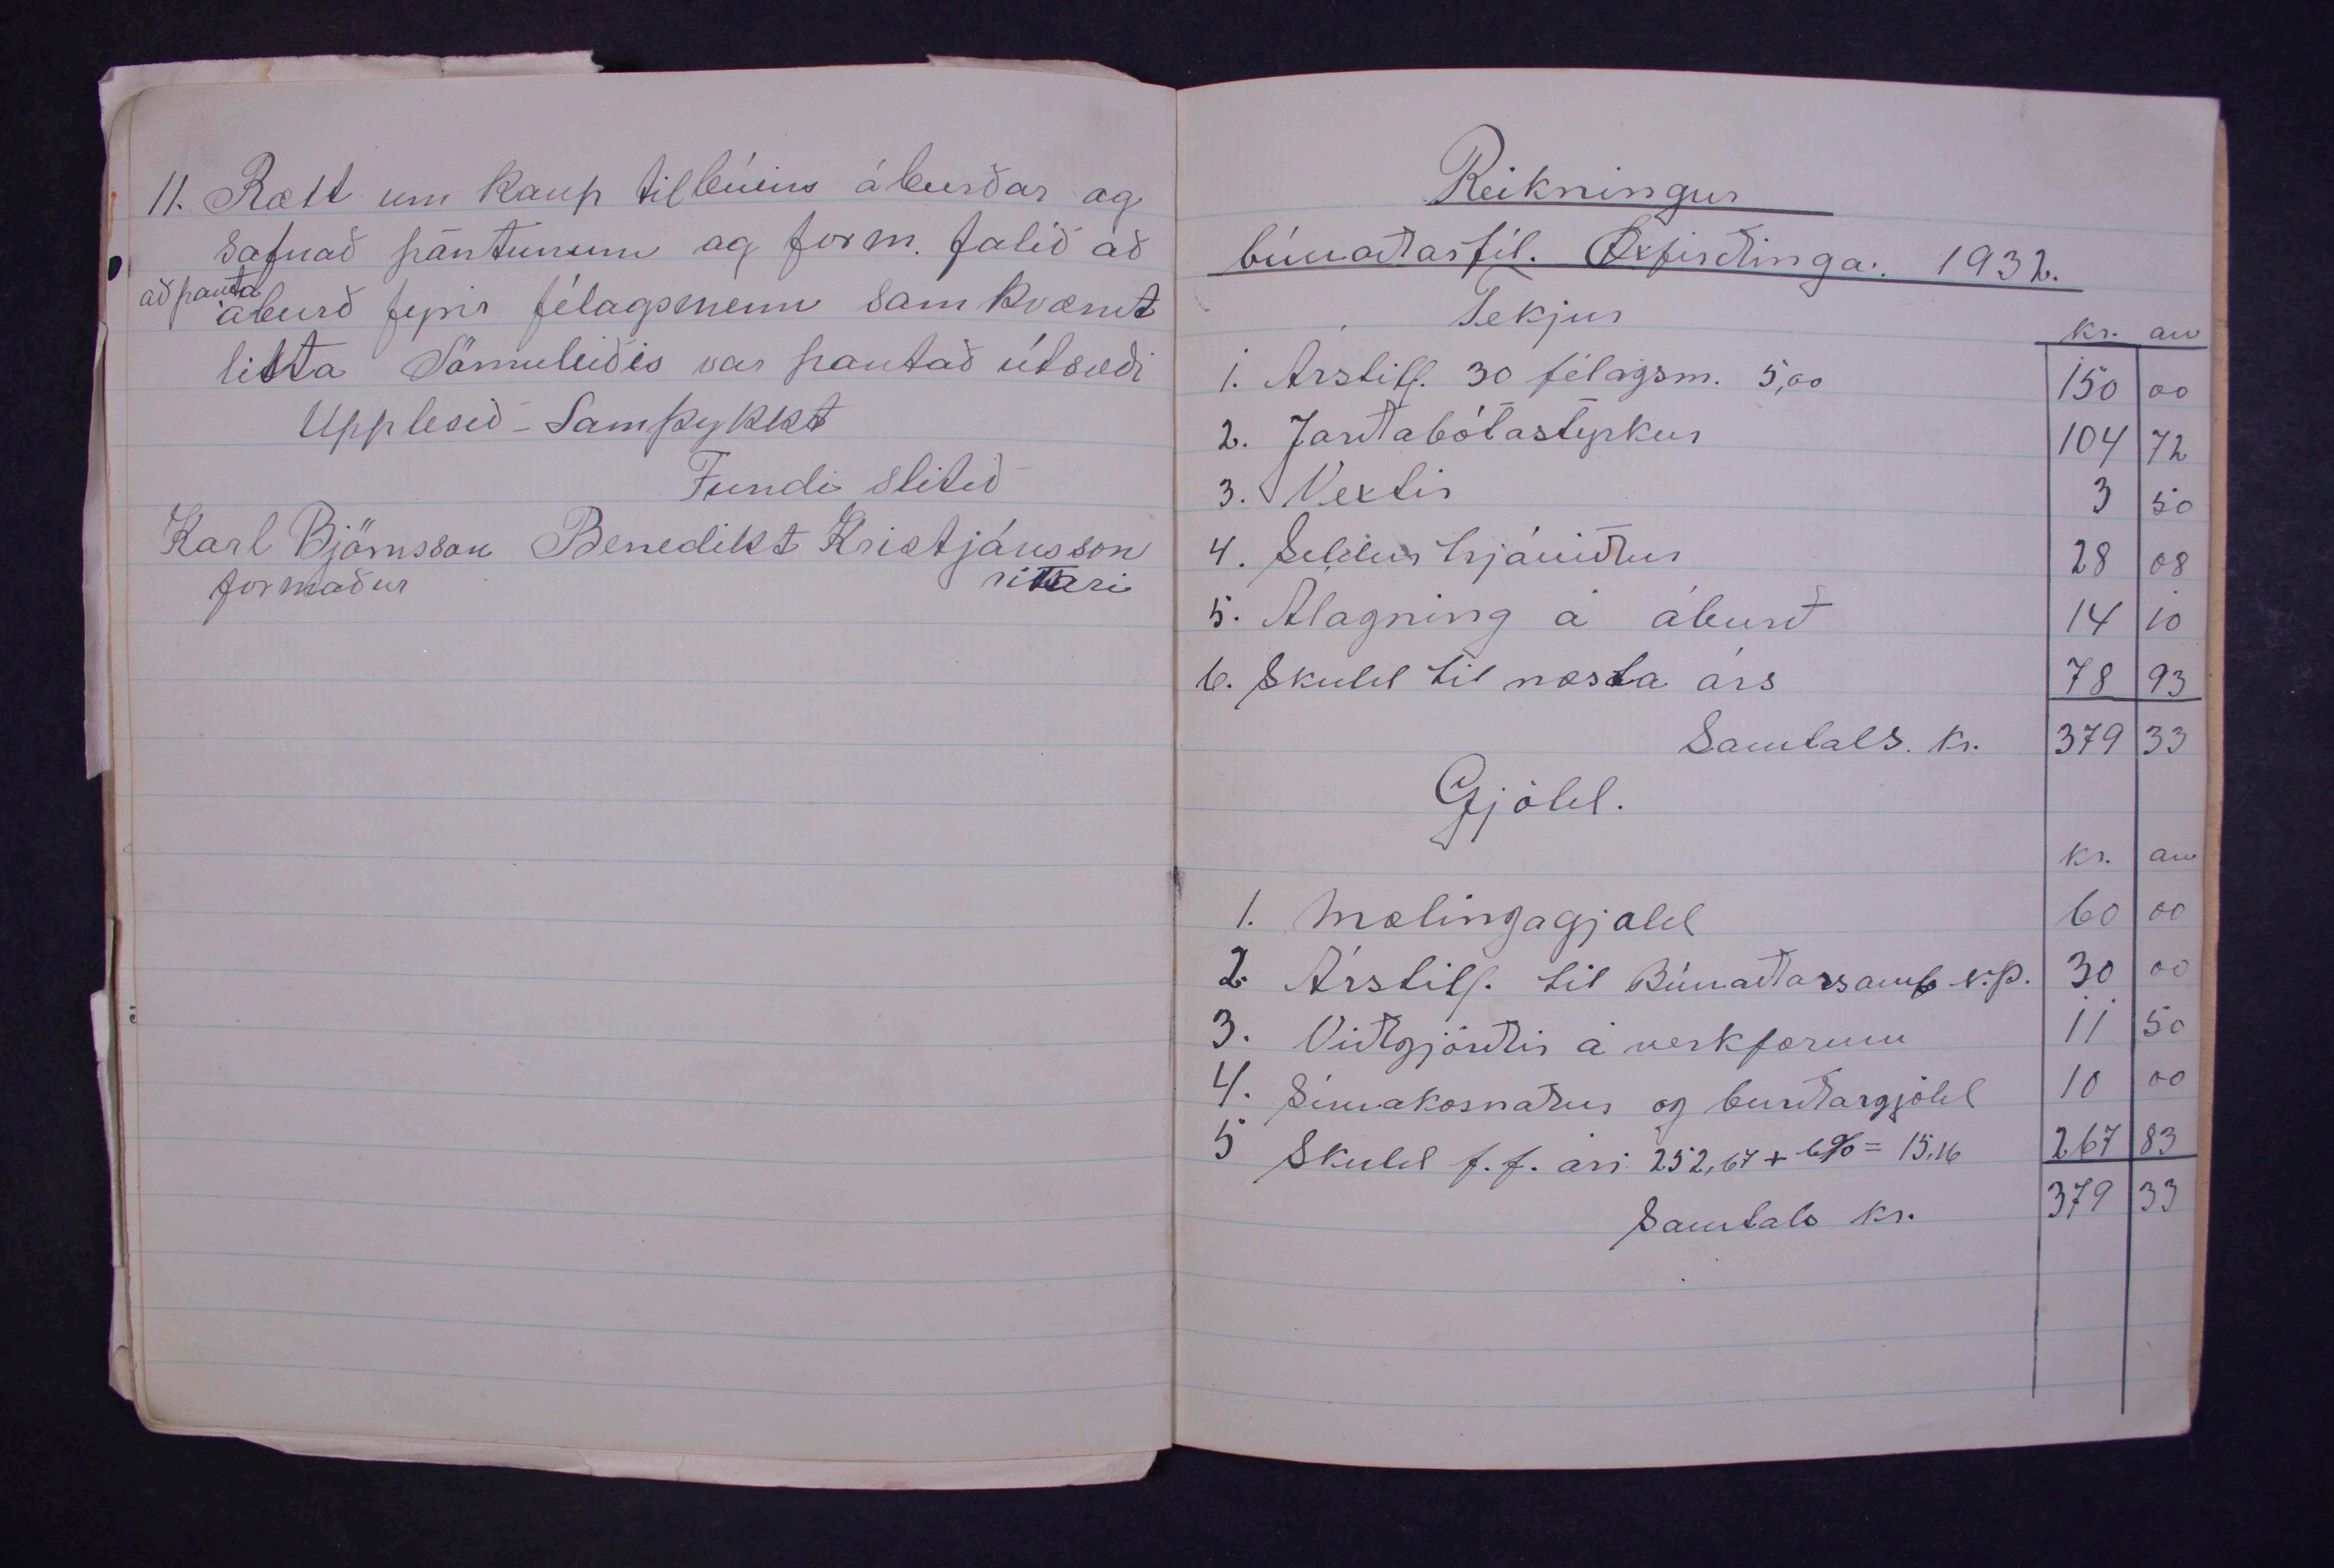 11. Rætt um kaup tilbúins áburðar og
safnað pöntunum og form. falið að
að panta
áburð fyrir félagsmenn samkvæmt
lista Sömuleiðis var pantað útsæði
Upplesið - Samþykkt
Fundi slitið
Karl Björnsson Benedikt Kristjánsson
formaður ritari
Reikningur
búnaðarfél. Öxfirðinga. 1932.
Tekjur kr. au
1. Árstill. 30 félagsm. 5,00 150 00
2. Jarðabótastyrkur 104 72
3. Vextir 3 50
4. Seldur 28 08
5. Álagning á áburð 14 10
6. Skuld til næsta árs 78 93
Samtals. kr. 379 33
Gjöld.
kr. au
1. Mælingagjald 60 00
2. Árstill. til Búnaðarsamb. N.Þ. 30 00
3. Viðgjörðir á verkfærum 11 50
4. Símakosnaður og burðargjöld 10 00
5 Skuld f. f. ári 252,67 + 6% = 15,16 267 83
Samtals kr. 379 33